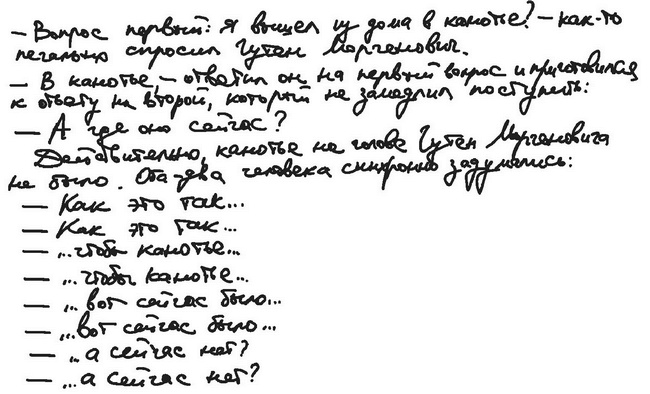 — Вопрос первый: Я вышел из дома в канотье? — как-то
печально спросил Гутен Моргенович.
— В канотье, — ответил он на первый вопрос и приготовился
к ответу на второй, который не замедлил поступить:
— А где оно сейчас?
Действительно, канотье на голове Гутен Моргеновича
не было. Оба-два человека синхронно задумались:
— Как это так...
— Как это так...
— ...чтобы канотье...
— ...чтобы канотье...
— ...вот сейчас было...
— ...вот сейчас было...
— ...а сейчас нет?
— ...а сейчас нет?